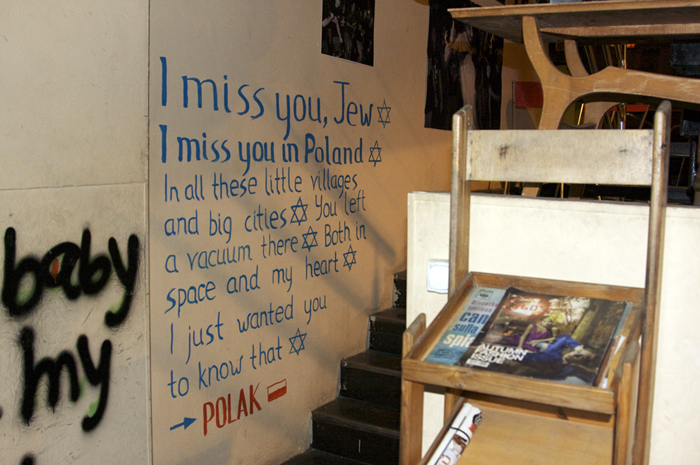 I miss you, Jew ✡
I miss you in Poland ✡
In all these little villages
and big cities ✡ You left
a vacuum there ✡ Both in
space and my heart ✡
I just wanted you
to know that ✡
→ POLAK
baby
my
can
sulla
AUTUMN
FASHION
ISSUE